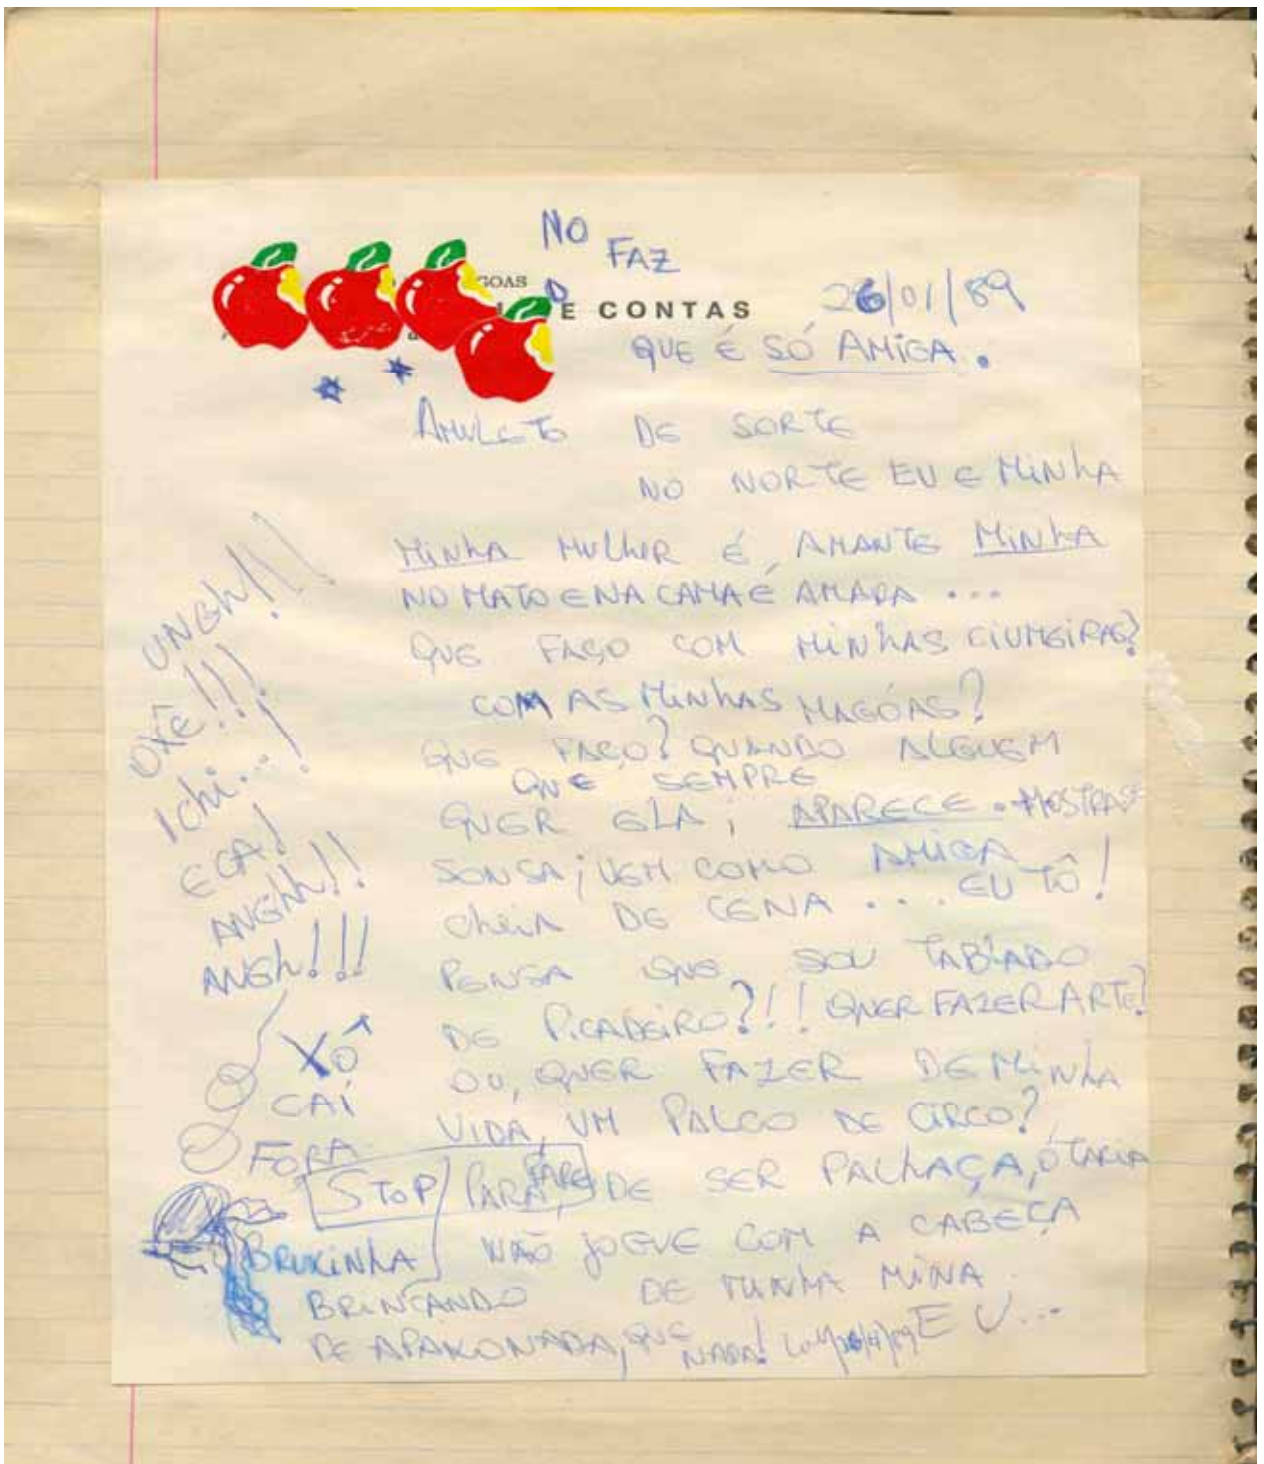 NO
FAZ
GOAS
E CONTAS
26/01/89
QUE É SÓ AMIGA.
AMULETO DE SORTE
NO NORTE EU E MINHA
MINHA MULHER É, AMANTE MINHA
NO MATO E NA CAMA É AMADA ...
QUE FAÇO COM MINHAS CIUMEIRAS?
COM AS MINHAS MAGÓAS?
QUE FAÇO? QUANDO ALGUEM
QUE SEMPRE
QUER ELA; APARECE. MOSTRA-SE
SONSA; VEM COMO AMIGA
CHEIA DE CENA ... EU TÔ!
PENSA QUE SOU TABLADO
DE PICADEIRO?!! QUER FAZER ARTE?
OU, QUER FAZER DE MINHA
VIDA, UM PALCO DE CIRCO?
STOP/ PARA, PARE DE SER PALHAÇA, ÓTARIA
NÃO JOGUE COM A CABEÇA
DE MINHA MINA
EU...
UNGH!!!
OXE!!!
ICHI...!
ECA!
ANGHH!!
ANGH!!!
XÔ
CAÍ
FORA
BRUXINHA
BRINCANDO
DE APAIXONADA, QUE
NADA!